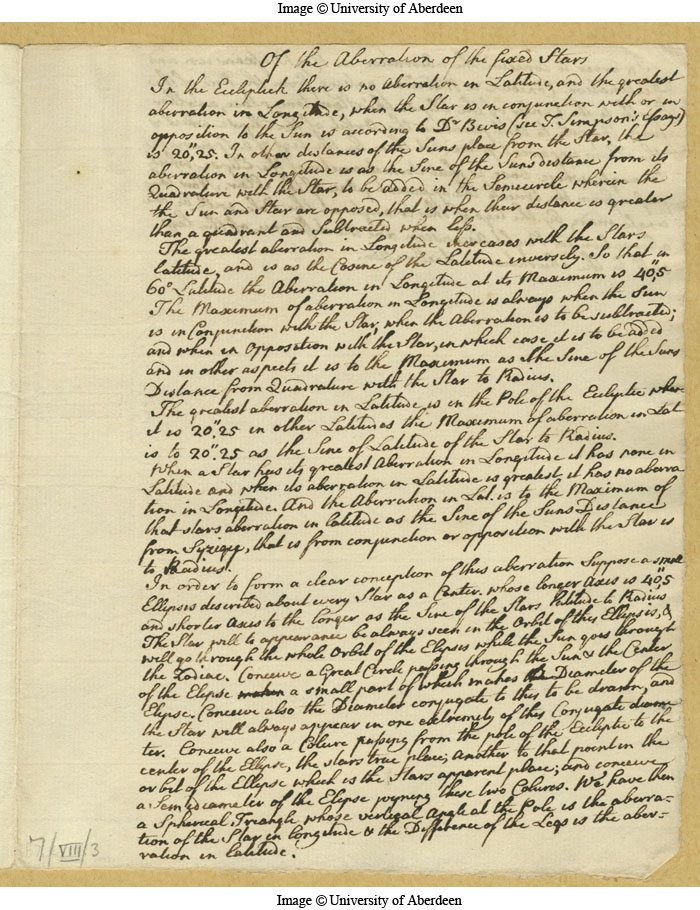 Image © University of Aberdeen
Of the Aberration of the fixed Stars
In the Ecliptick there is no Aberration in Latitude, and the greatest
aberration in Longitude, when the Star is in conjunction with or in
opposition to the Sun is according to Dr Bevis (see T. Simpson's Essays)
is 20",25. In other distances of the Suns place from the Star, the
aberration in Longitude is as the Sine of the Suns distance from its
Quadrature with the Star, to be added in the Semicircle wherein the
the Sun and Star are opposed, that is when their distance is greater
than a quadrant and Subtracted when less.
The greatest aberration in Longitude increases with the Stars
latitude, and is as the Cosine of the Latitude inversely. So that in
60° Latitude the Aberration in Longitude at its Maximum is 40",5
The Maximum of aberration in Longitude is always when the Sun
is in Conjunction with the Star, when the Aberration is to be subtracted;
and when in Opposition with the Star, in which case it is to be added
and in other aspects it is to the Maximum as the Sine of the Suns
Distance from Quadrature with the Star to Radius.
The greatest aberration in Latitude is in the Pole of the Ecliptic where
it is 20".25 in other Latitudes the Maximum of aberration in Lat
is to 20".25 as the Sine of Latitude of the Star to Radius.
When a Star has its greatest Aberration in Longitude it has none in
Latitude and when its aberration in Latitude is greatest, it has no aberra
tion in Longitude. And the Aberration in Lat. is to the Maximum of
that stars aberration in latitude as the Sine of the Suns Distance
from Syzigy, that is from conjunction or opposition with the Star is
to Radius.
In order to form a clear conception of this aberration Suppose a small
Ellipsis described about every Star as a Center. whose longer Axis is 40",5
and shorter Axis to the longer as the Sine of the Stars Latitude to Radius
The Star will to appearance be always seen in the Orbit of this Ellipsis, &
will go through the whole Orbit of the Elypsis while the Sun goes through
the Zodiac. Conceive a Great Circle passing through the Sun & the Center
of the Elipse a small part of which makes Diameter of the
Elypse. Conceive also the Diameter conjugate to this to be drawn, and
the Star will always appear in one extremity of this Conjugate diame
ter. Conceive also a Colure passing from the pole of the Ecliptic to the
center of the Ellipse, the stars true place; another to that point in the
or bit of the Ellipse which is the Stars apparent place; and conceive
a Semidiameter of the Elipse joyning these two Colures. We have then
a Spherical Triangle whose vertical Angle at the Pole is the aberra-
tion of the Star in longitude & the Difference of the Legs is the aber-
ration in latitude.
7/VIII/3
Image © University of Aberdeen